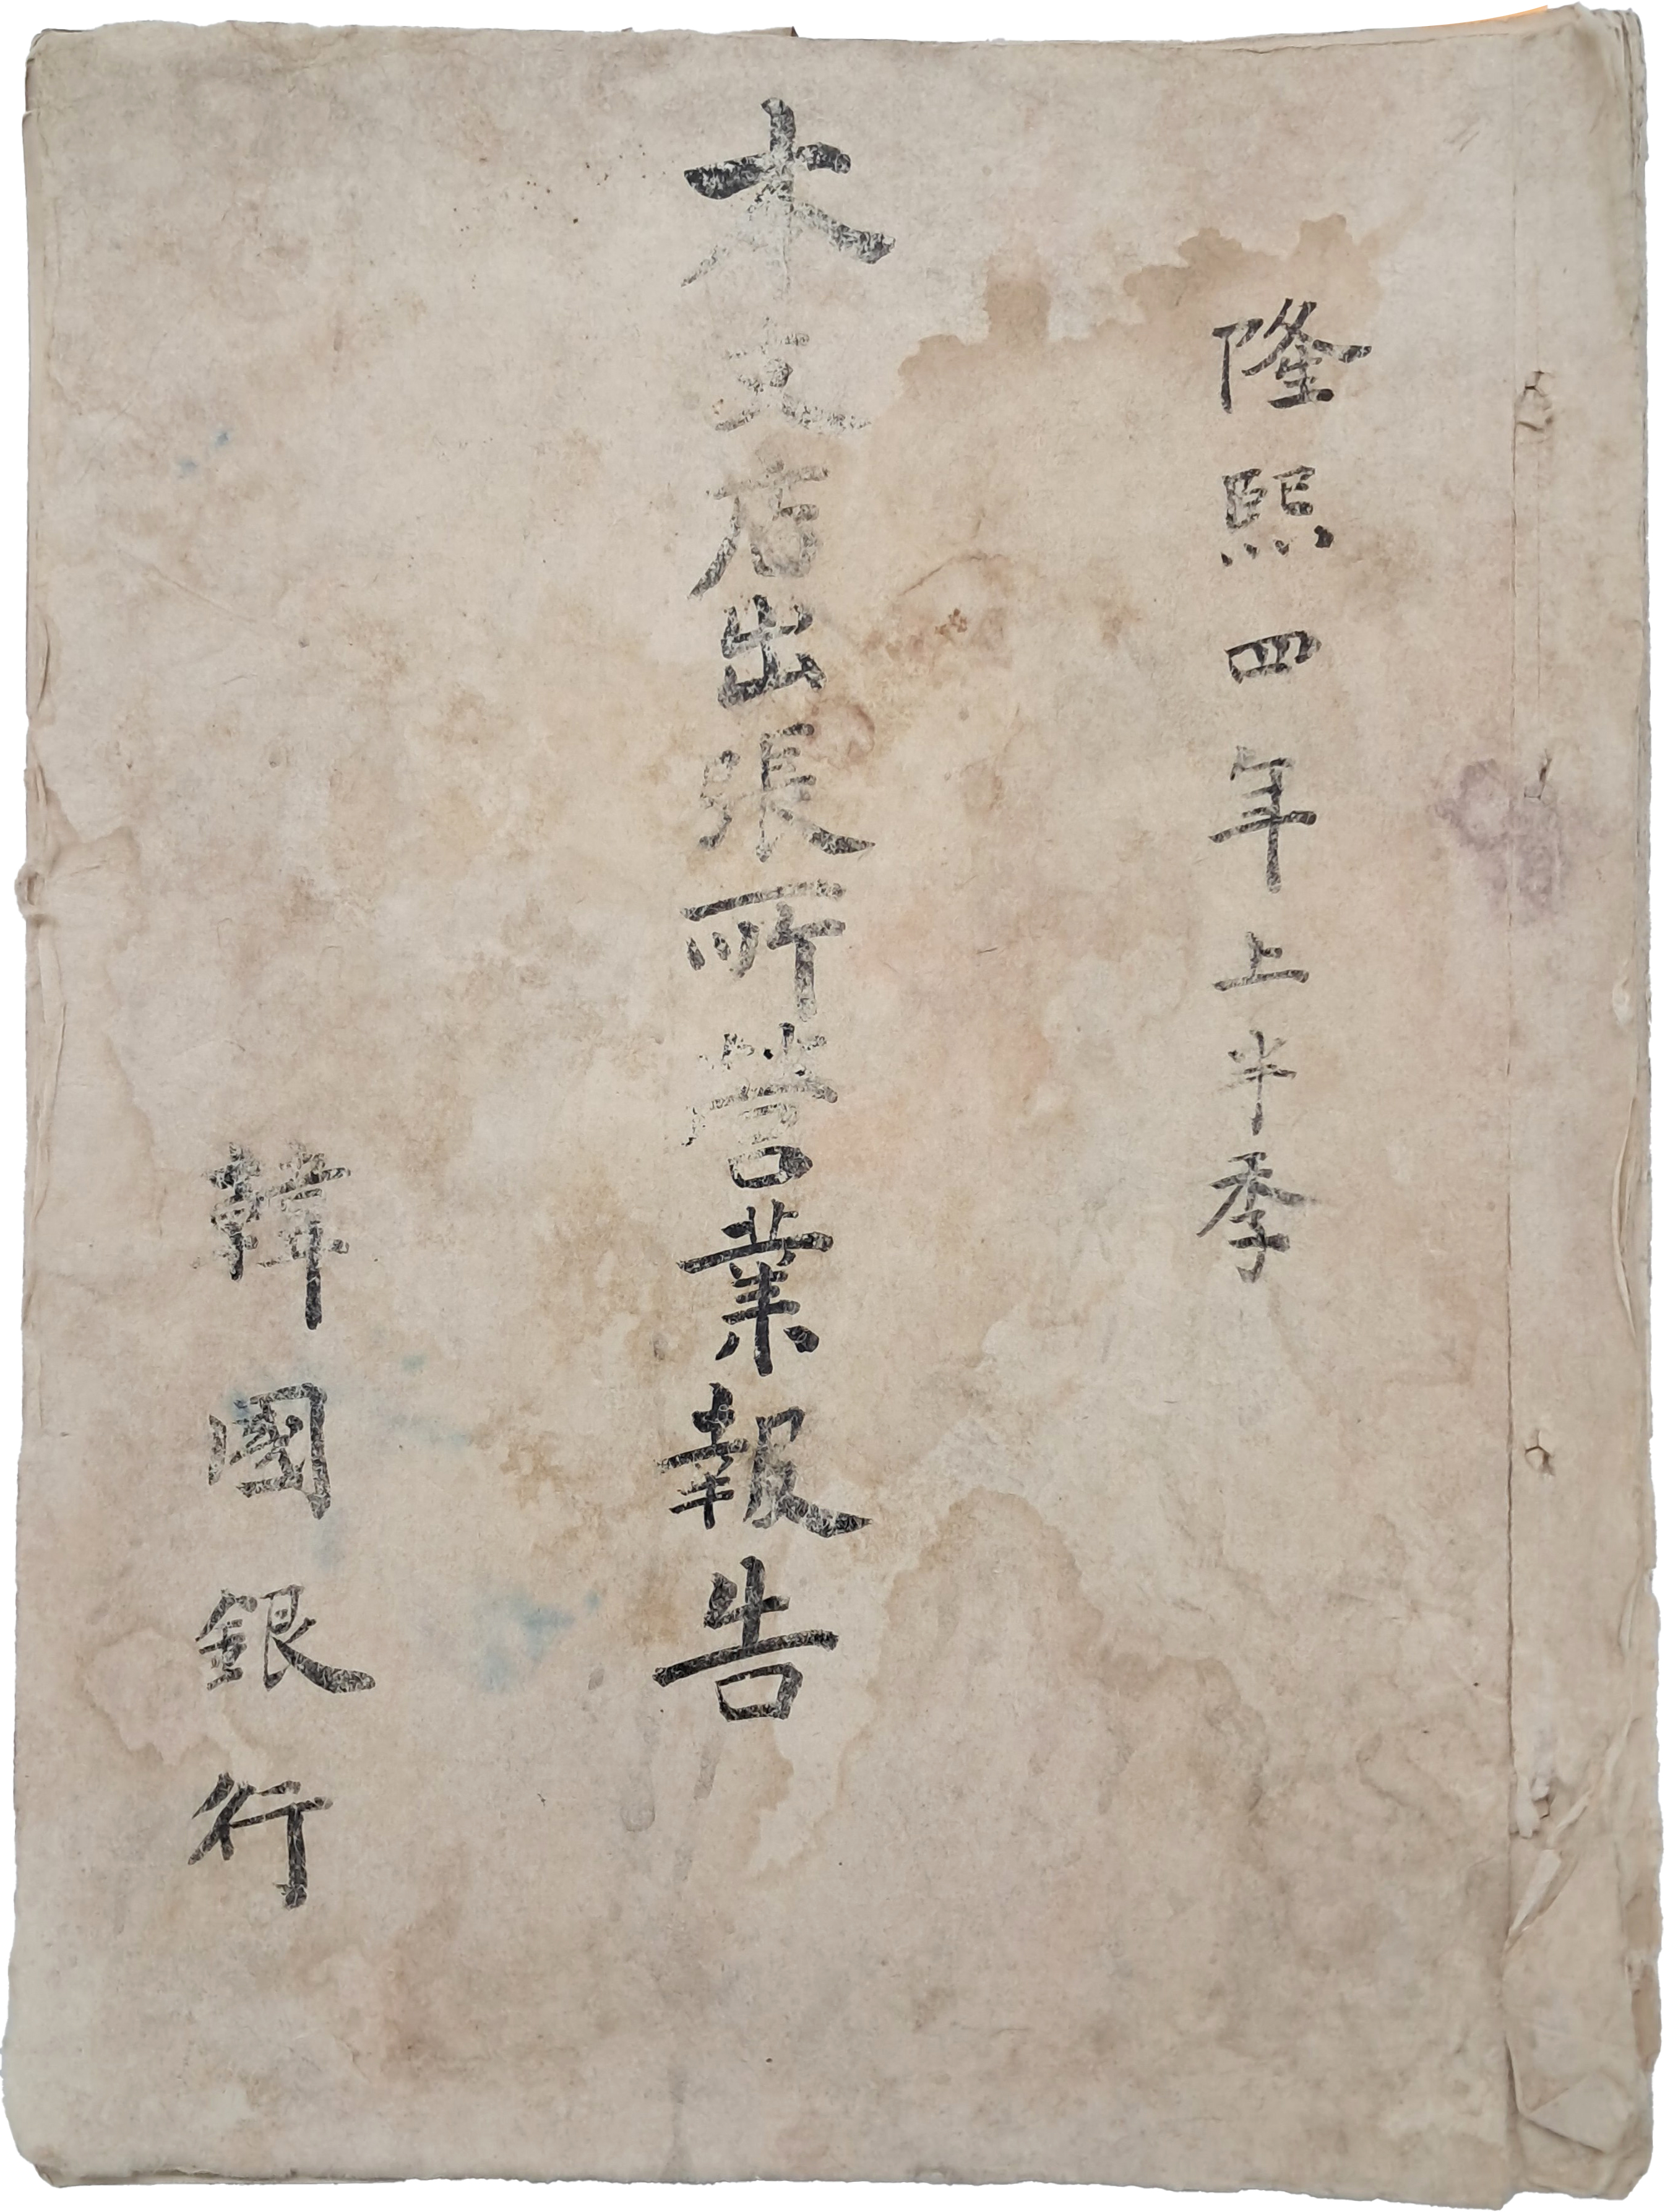 隆熙四年上半季
本支店出張所營業報告
韓國銀行